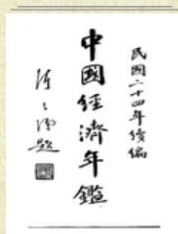 民國二十四年續編
中國經濟年鑑
題